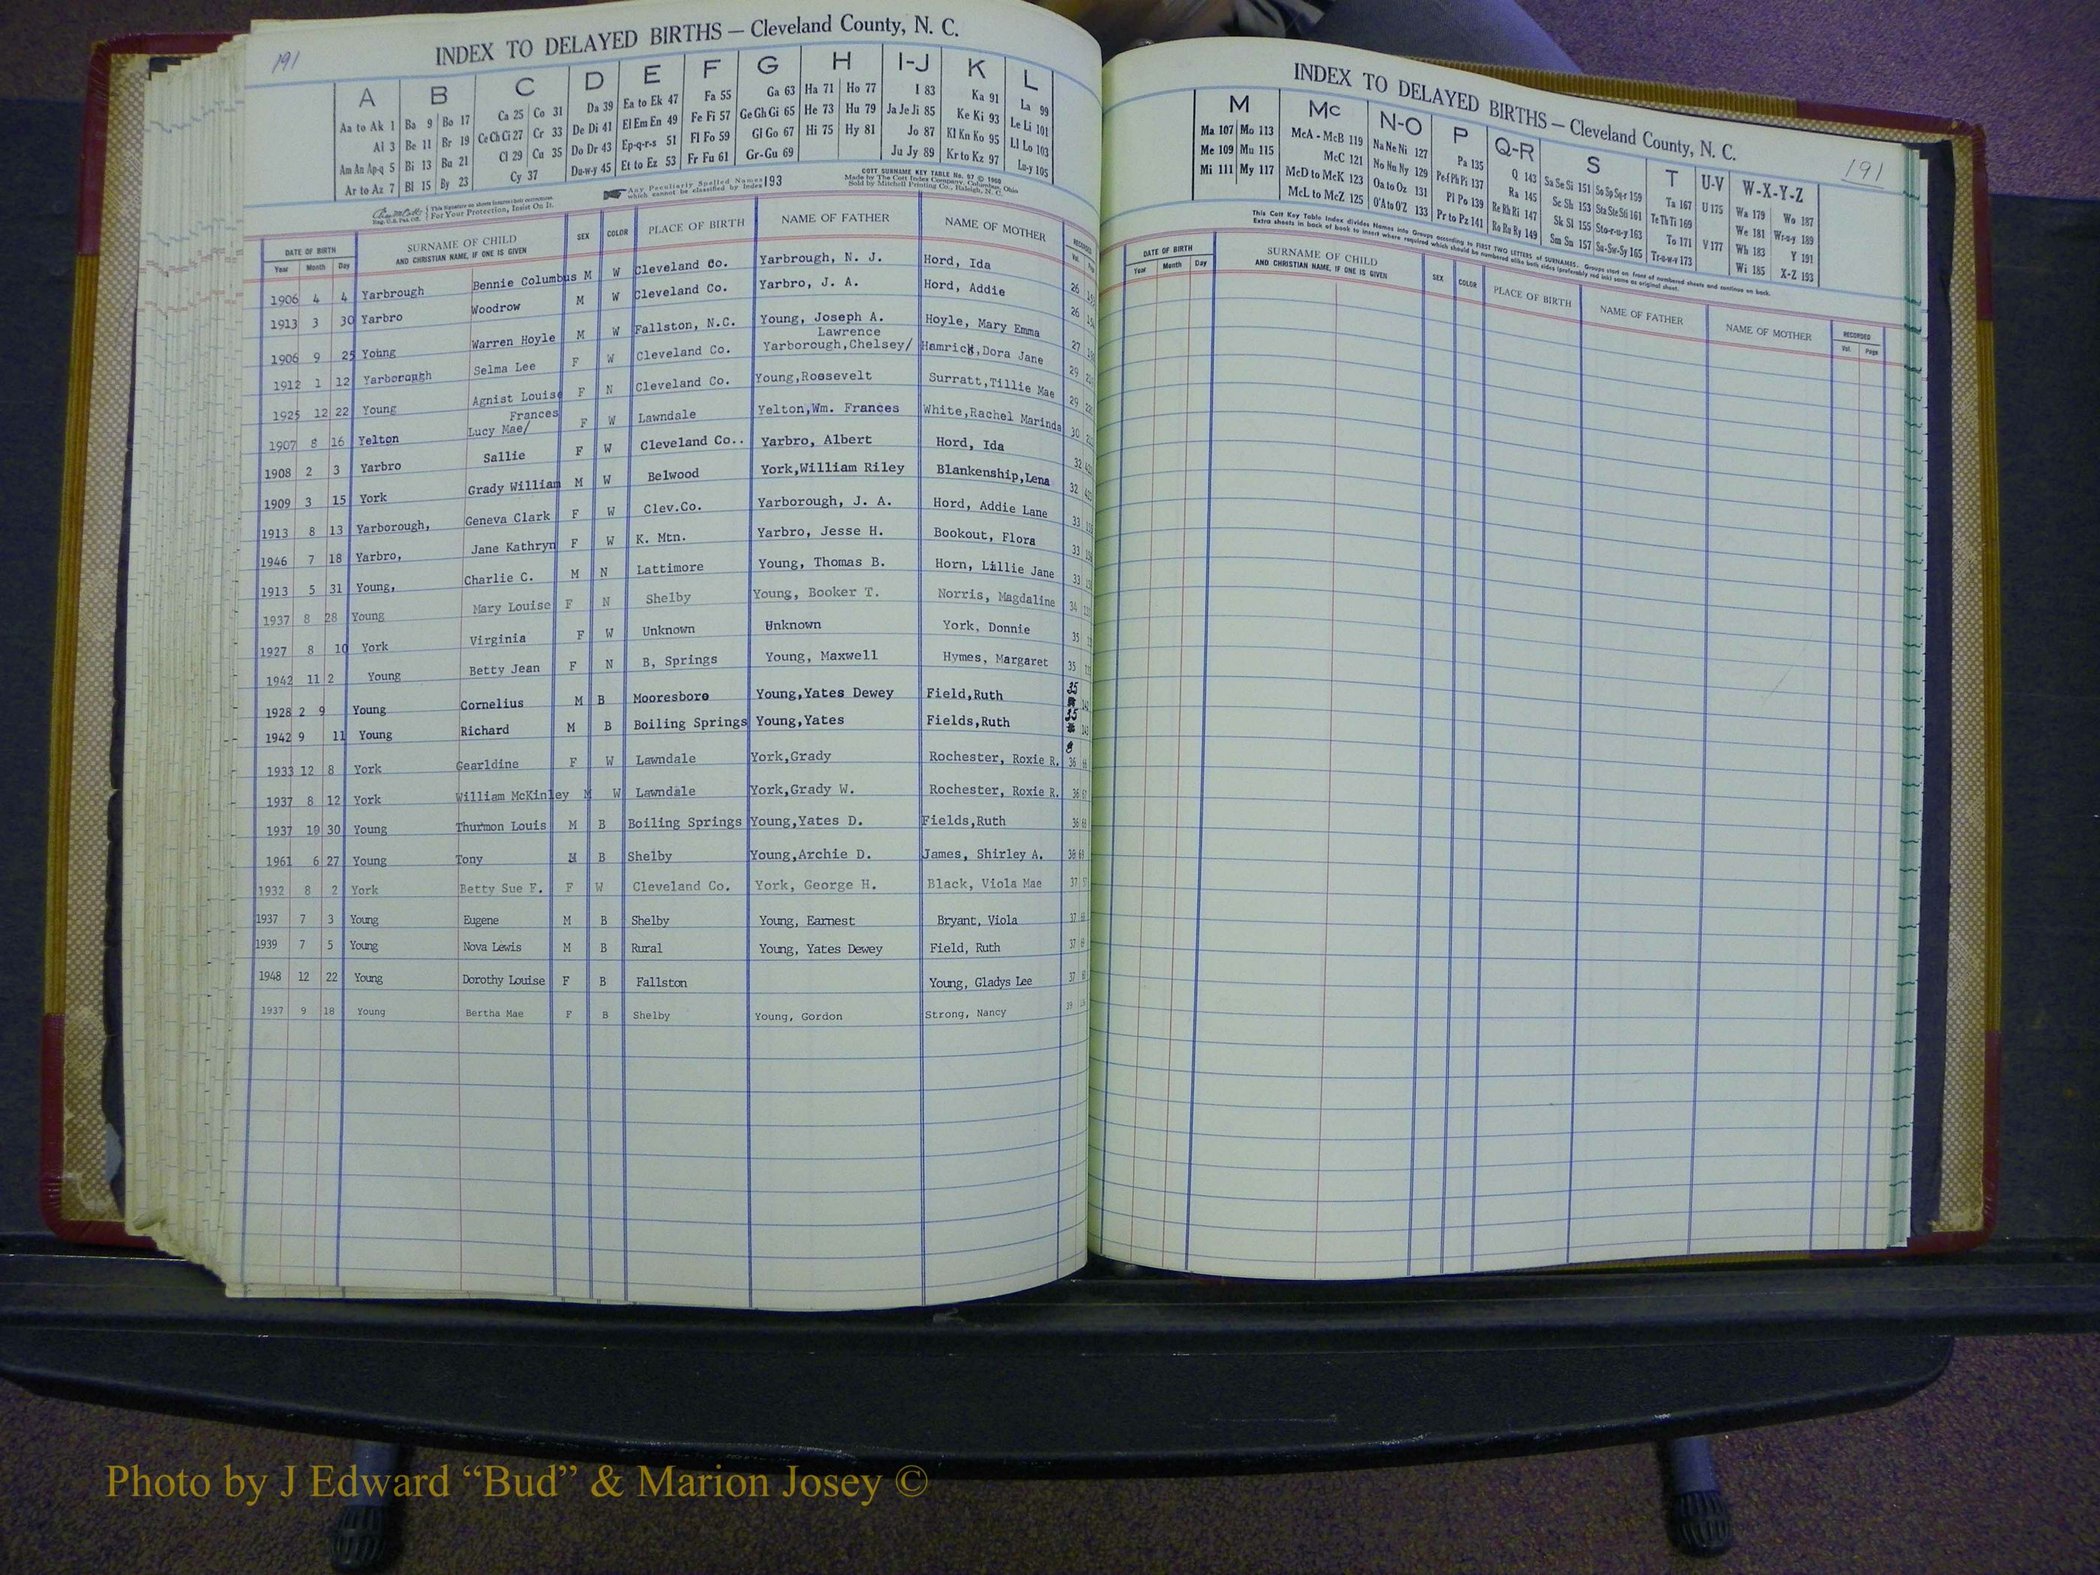 191
INDEX TO DELAYED BIRTHS — Cleveland County, N. C.
A B C D E F G H I-J K L
Aa to Ak 1 Ba 9 Bo 17 Ca 25 Co 31 Da 39 Ea to Ek 47 Fa 55 Ga 63 Ha 71 Ho 77 I 83 Ka 91 La 99
Al 3 Be 11 Br 19 Ce Ch Ci 27 Cr 33 De Di 41 El Em En 49 Fe Fi 57 Ge Gh Gi 65 He 73 Hu 79 Ja Je Ji 85 Ke Ki 93 Le Li 101
Am An Ap-q 5 Bi 13 Bu 21 Cl 29 Cu 35 Do Dr 43 Ep-q-r-s 51 Fl Fo 59 Gl Go 67 Hi 75 Hy 81 Jo 87 Kl Kn Ko 95 Ll Lo 103
Ar to Az 7 Bl 15 By 23 Cy 37 Du-w-y 45 Et to Ez 53 Fr Fu 61 Gr-Gu 69 Ju Jy 89 Kr to Kz 97 Lu-y 105
For Your Protection, Insist On It.
Any Peculiarly Spelled Names which cannot be classified by Index 193
COTT SURNAME KEY TABLE No. 97 © 1960
Made by The Cott Index Company, Columbus, Ohio
Sold by Mitchell Printing Co., Raleigh, N. C.
DATE OF BIRTH SURNAME OF CHILD AND CHRISTIAN NAME, IF ONE IS GIVEN SEX COLOR PLACE OF BIRTH NAME OF FATHER NAME OF MOTHER RECORDED
Year Month Day Vol. Page
1906 4 4 Yarbrough Bennie Columbus M W Cleveland Co. Yarbrough, N. J. Hord, Ida 26
1913 3 30 Yarbro Woodrow M W Cleveland Co. Yarbro, J. A. Hord, Addie 26
1906 9 25 Young Warren Hoyle M W Fallston, N.C. Young, Joseph A. Hoyle, Mary Emma 27
Lawrence
1912 1 12 Yarborough Selma Lee F W Cleveland Co. Yarborough,Chelsey/ Hamrick,Dora Jane 29
1925 12 22 Young Agnist Louise F N Cleveland Co. Young,Roosevelt Surratt,Tillie Mae 29
Frances
1907 8 16 Yelton Lucy Mae/ F W Lawndale Yelton,Wm. Frances White,Rachel Marinda 30
1908 2 3 Yarbro Sallie F W Cleveland Co.. Yarbro, Albert Hord, Ida 32
1909 3 15 York Grady William M W Belwood York,William Riley Blankenship,Lena 32
1913 8 13 Yarborough, Geneva Clark F W Clev.Co. Yarborough, J. A. Hord, Addie Lane 33
1946 7 18 Yarbro, Jane Kathryn F W K. Mtn. Yarbro, Jesse H. Bookout, Flora 33
1913 5 31 Young, Charlie C. M N Lattimore Young, Thomas B. Horn, Lillie Jane 33
1937 8 28 Young Mary Louise F N Shelby Young, Booker T. Norris, Magdaline 34
1927 8 10 York Virginia F W Unknown Unknown York, Donnie 35
1942 11 2 Young Betty Jean F N B, Springs Young, Maxwell Hymes, Margaret 35
1928 2 9 Young Cornelius M B Mooresboro Young,Yates Dewey Field,Ruth 35
1942 9 11 Young Richard M B Boiling Springs Young,Yates Fields,Ruth 35
1933 12 8 York Gearldine F W Lawndale York,Grady Rochester, Roxie R. 36 66
1937 8 12 York William McKinley M W Lawndale York,Grady W. Rochester, Roxie R. 36 67
1937 10 30 Young Thurmon Louis M B Boiling Springs Young,Yates D. Fields,Ruth 36
1961 6 27 Young Tony M B Shelby Young,Archie D. James, Shirley A.
1932 8 2 York Betty Sue F. F W Cleveland Co. York, George H. Black, Viola Mae 37
1937 7 3 Young Eugene M B Shelby Young, Earnest Bryant, Viola 37
1939 7 5 Young Nova Lewis M B Rural Young, Yates Dewey Field, Ruth 37
1948 12 22 Young Dorothy Louise F B Fallston Young, Gladys Lee 37
1937 9 18 Young Bertha Mae F B Shelby Young, Gordon Strong, Nancy 39
INDEX TO DELAYED BIRTHS — Cleveland County, N. C.
191
M Mc N-O P Q-R S T U-V W-X-Y-Z
Ma 107 Mo 113 McA - McB 119 Na Ne Ni 127 Pa 135 Q 143 Sa Se Si 151 So Sp Sq-r 159 Ta 167 U 175 Wa 179 Wo 187
Me 109 Mu 115 McC 121 No Nu Ny 129 Pe-f Ph Pi 137 Ra 145 Sc Sh 153 Sta Ste Sti 161 Te Th Ti 169 We 181 Wr-u-y 189
Mi 111 My 117 McD to McK 123 Oa to Oz 131 Pl Po 139 Re Rh Ri 147 Sk Sl 155 Sto-r-u-y 163 To 171 Wh 183 Y 191
McL to McZ 125 O'A to O'Z 133 Pr to Pz 141 Ro Ru Ry 149 Sm Sn 157 Su-Sw-Sy 165 Tr-u-w-y 173 V 177 Wi 185 X-Z 193
This Cott Key Table Index divides Names into Groups according to FIRST TWO LETTERS of SURNAMES. Groups start on front of numbered sheets and continue on back.
Extra sheets in back of book to insert where required which should be numbered alike both sides (preferably red ink) same as original sheet.
DATE OF BIRTH SURNAME OF CHILD AND CHRISTIAN NAME, IF ONE IS GIVEN SEX COLOR PLACE OF BIRTH NAME OF FATHER NAME OF MOTHER RECORDED
Year Month Day Vol. Page
Photo by J Edward “Bud” & Marion Josey ©